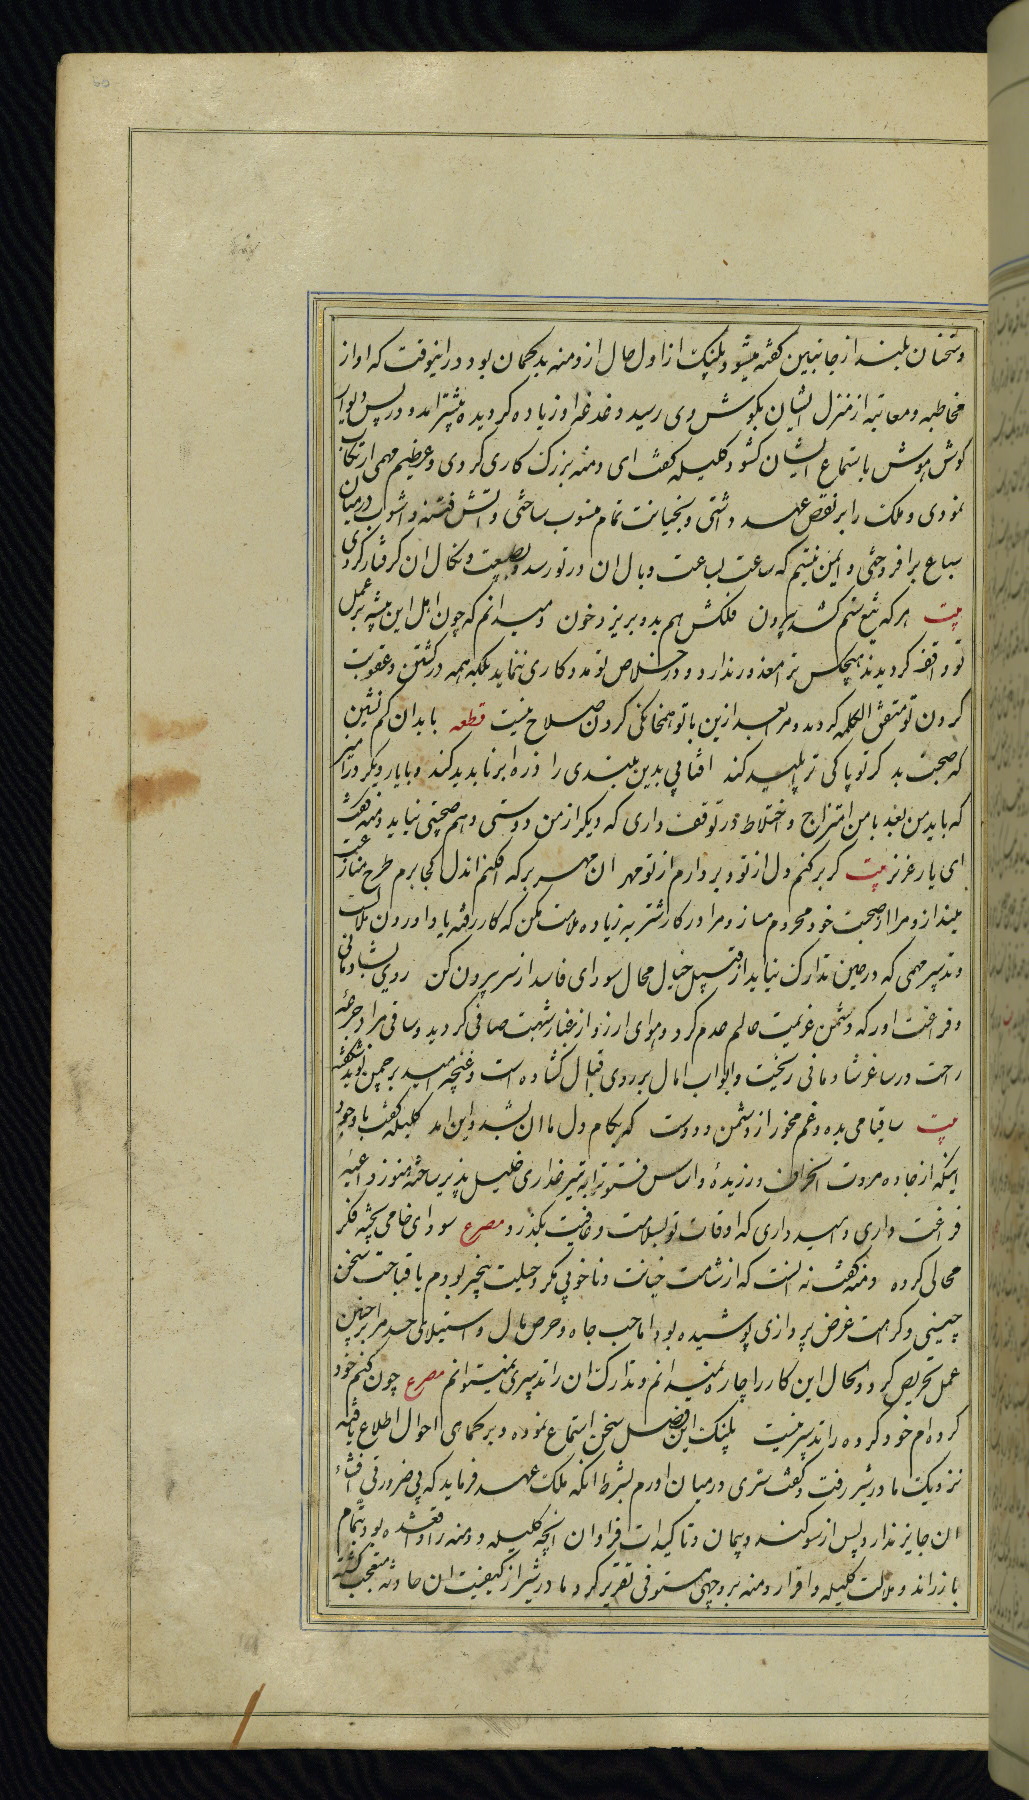 و سخنان بلند از جانبین کفته میشود پلنک از اول حال از دمنه بدکمان بود درینوقت که اواز
مخاطبه و معاتبه از منزل ایشان بکوش وی رسید دغدغه او زیاده کردیده پیشتر امد و در پس دیوار
کوش هوش باستماع ایشان کشود کلیله کفت ای دمنه بزرک کاری کردی و عظیم مهمی ارتکاب
نمودی و ملک را بر نقض عهد داشتی و بخیانت تمام منسوب ساختی و اتش فتنه و اشوب درمیان
سباع برافروختی و ایمن نیستم که ساعت بساعت وبال ان در تو رسد و بصعبت و نکال ان کرفتار کردی
بیت هر که تیغ ستم کشد بیرون فلکش هم بدو بریزد خون و میدانم که چون اهل این بیشه بر عمل
تو واقف کردیدند هیچکس ترا معذور ندارد و در خلاص تو مددکاری ننماید بلکه همه در کشتن و عقوبت
کردن تو متفق الکلمه کردند و مرا بعد ازین با تو همخانکی کردن صلاح نیست قطعه با بدان کم نشین
که صحبت بد کر تو پاکی ترا پلید کند افتابی بدین بلندی را ذره ابر ناپدید کند و با یار دیکر درامیز
که باید من بعد با من امتزاج و اختلاط در توقف داری که دیکر از من دوستی و هم صحبتی نیاید دمنه کفت
ای یار عزیز بیت کر بر کنم دل از تو و بردارم از تو مهر ان مهر بر که افکنم اندل کجا برم طرح منازعت
بینداز و مرا از صحبت خود محروم مساز و مرا در کار شتربه زیاده ملامت مکن که کار رفته یاد اوردن ملالت
و تدبیر مهمی که در حین تدارک نیاید از قبیل خیال محال سودای فاسد از سر بیرون کن روی بشادمانی
و فراغت اور که دشمن عزیمت عالم عدم کرد و هوای ارزو از غبار شبهت صافی کردید و ساقی مراد جرعهٔ
راحت در ساغر شادمانی ریخت و ابواب امال بر روی اقبال کشاده است و غنچه امید بر چمن نوید شکفته
بیت ساقیا می بده و غم مخور از دشمن و دوست که بکام دل ما ان بشد و این امد کلیله کفت با وجود
اینکه از جاده مروت انحراف ورزیدهٔ و اساس فتوت را به تبر غداری خلل پذیر ساخته هنوز داعیهٔ
فراغت داری و امید داری که اوقات تو بسلامت و عافیت بکذرد مصرع سودای خامی پخته فکر
محالی کرده دمنه کفت نه انست که از شامت خیانت و ناخوبی مکر و حیلت بیخبر بودم یا قباحت سخن
چینی و کراهت غرض پردازی پوشیده بود اما حب جاه و حرص مال و استیلای حسد مرا بر چنین
عمل تحریص کرد و الحال این کار را چاره نمیدانم و تدارک ان را تدبیری نمیتوانم مصرع چون کنم خود
کرده ام خود کرده را تدبیر نیست پلنک این فصل سخن استماع نموده و بر کماهی احوال اطلاع یافته
نزدیک مادر شیر رفت و کفت سری درمیان اورم بشرط انکه ملک عهد فرماید که بی ضرورتی افشاء
ان جایز ندارد پس از سوکند و پیمان و تاکیدات فراوان انچه کلیله و دمنه را واقع شده بود بتمام
باز راند و ملامت کلیله و اقرار دمنه بر وجهی مستوفی تقریر کرد مادر شیر از کیفیت ان حادثه متعجب کشته